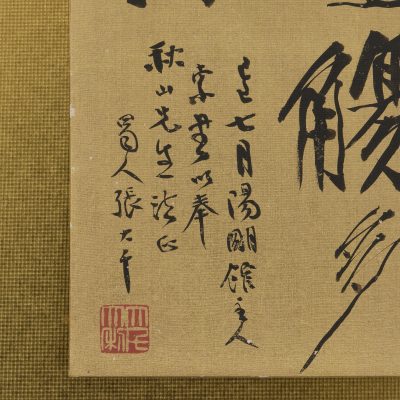 觴多
七月陽明館主人
索書以奉
秋山先生法正
蜀人張大千